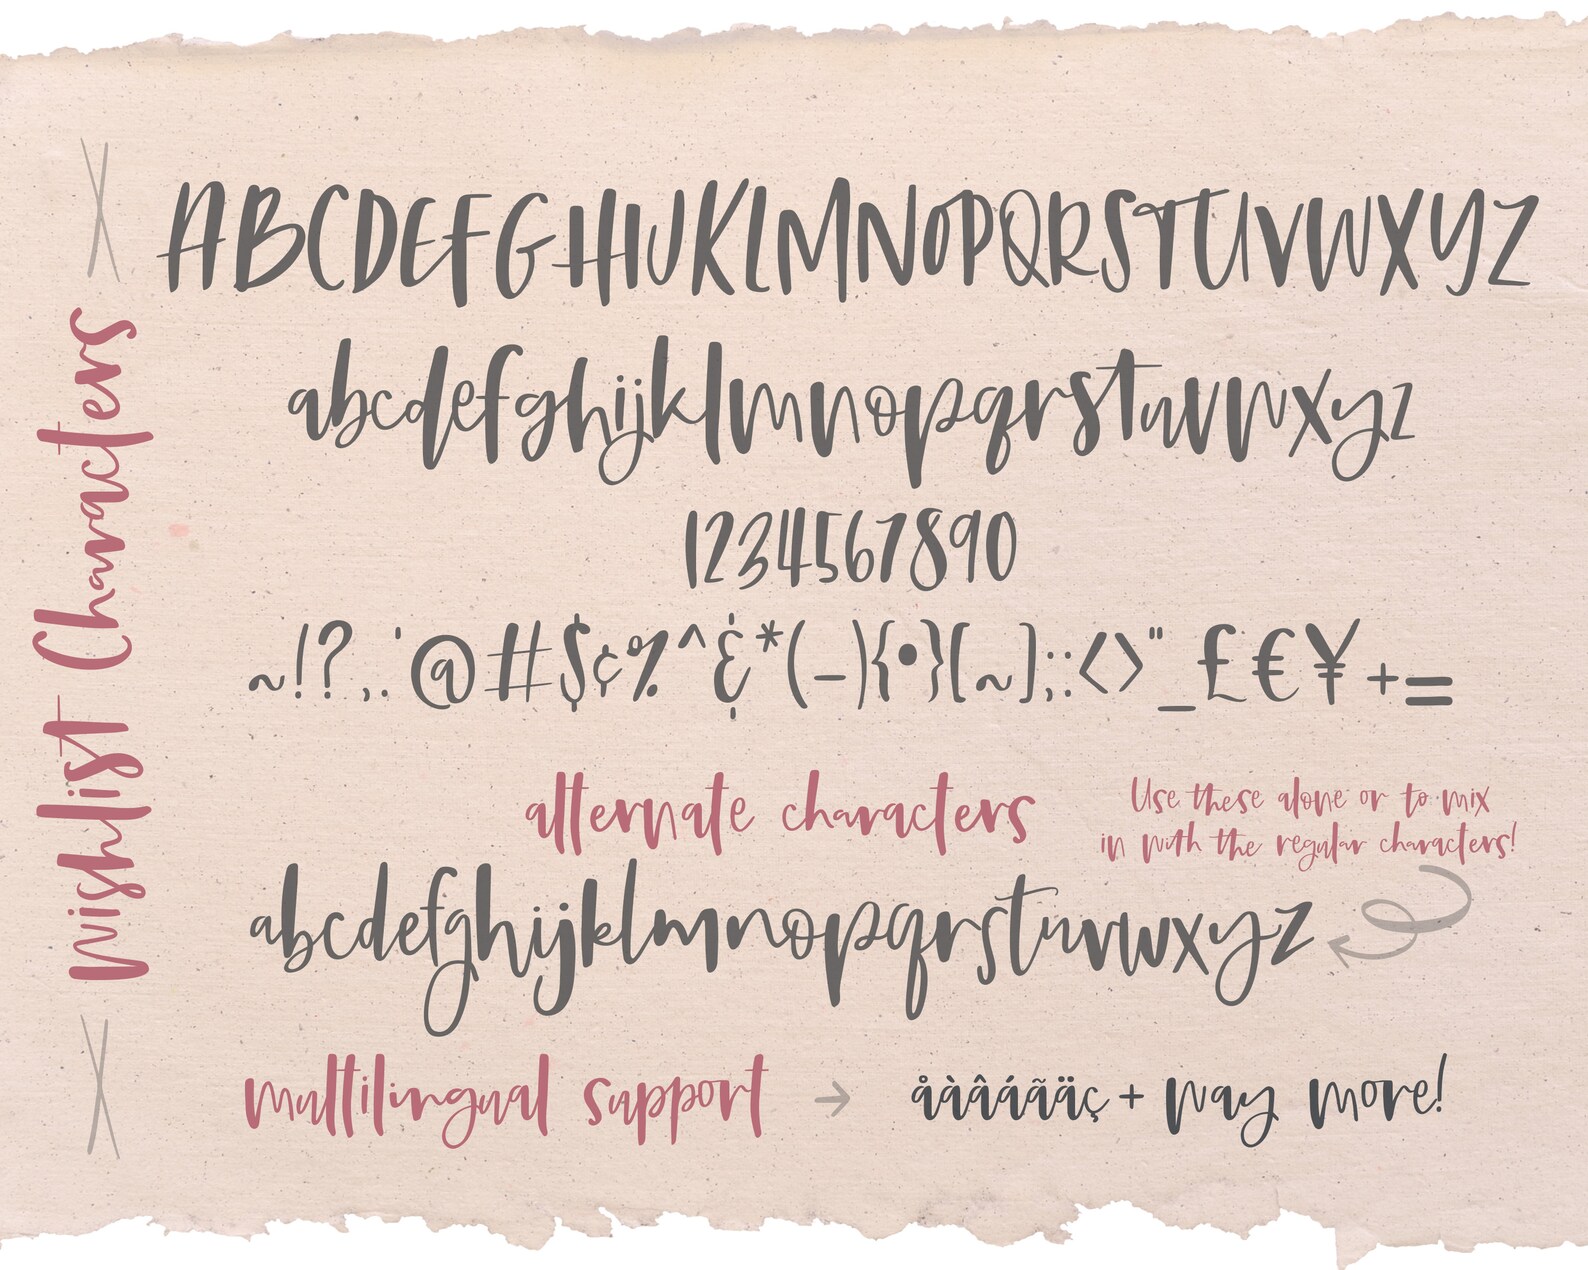 Wishlist Characters
ABCDEFGHIJKLMNOPQRSTUVWXYZ
abcdefghijklmnopqrstuvwxyz
1234567890
~!?,.'@#$¢%^&*(-){•}[~];:<>"_£€¥+=
alternate characters
Use these alone or to mix
in with the regular characters!
abcdefghijklmnopqrstuvwxyz
multilingual support → åàâáãäç + way more!